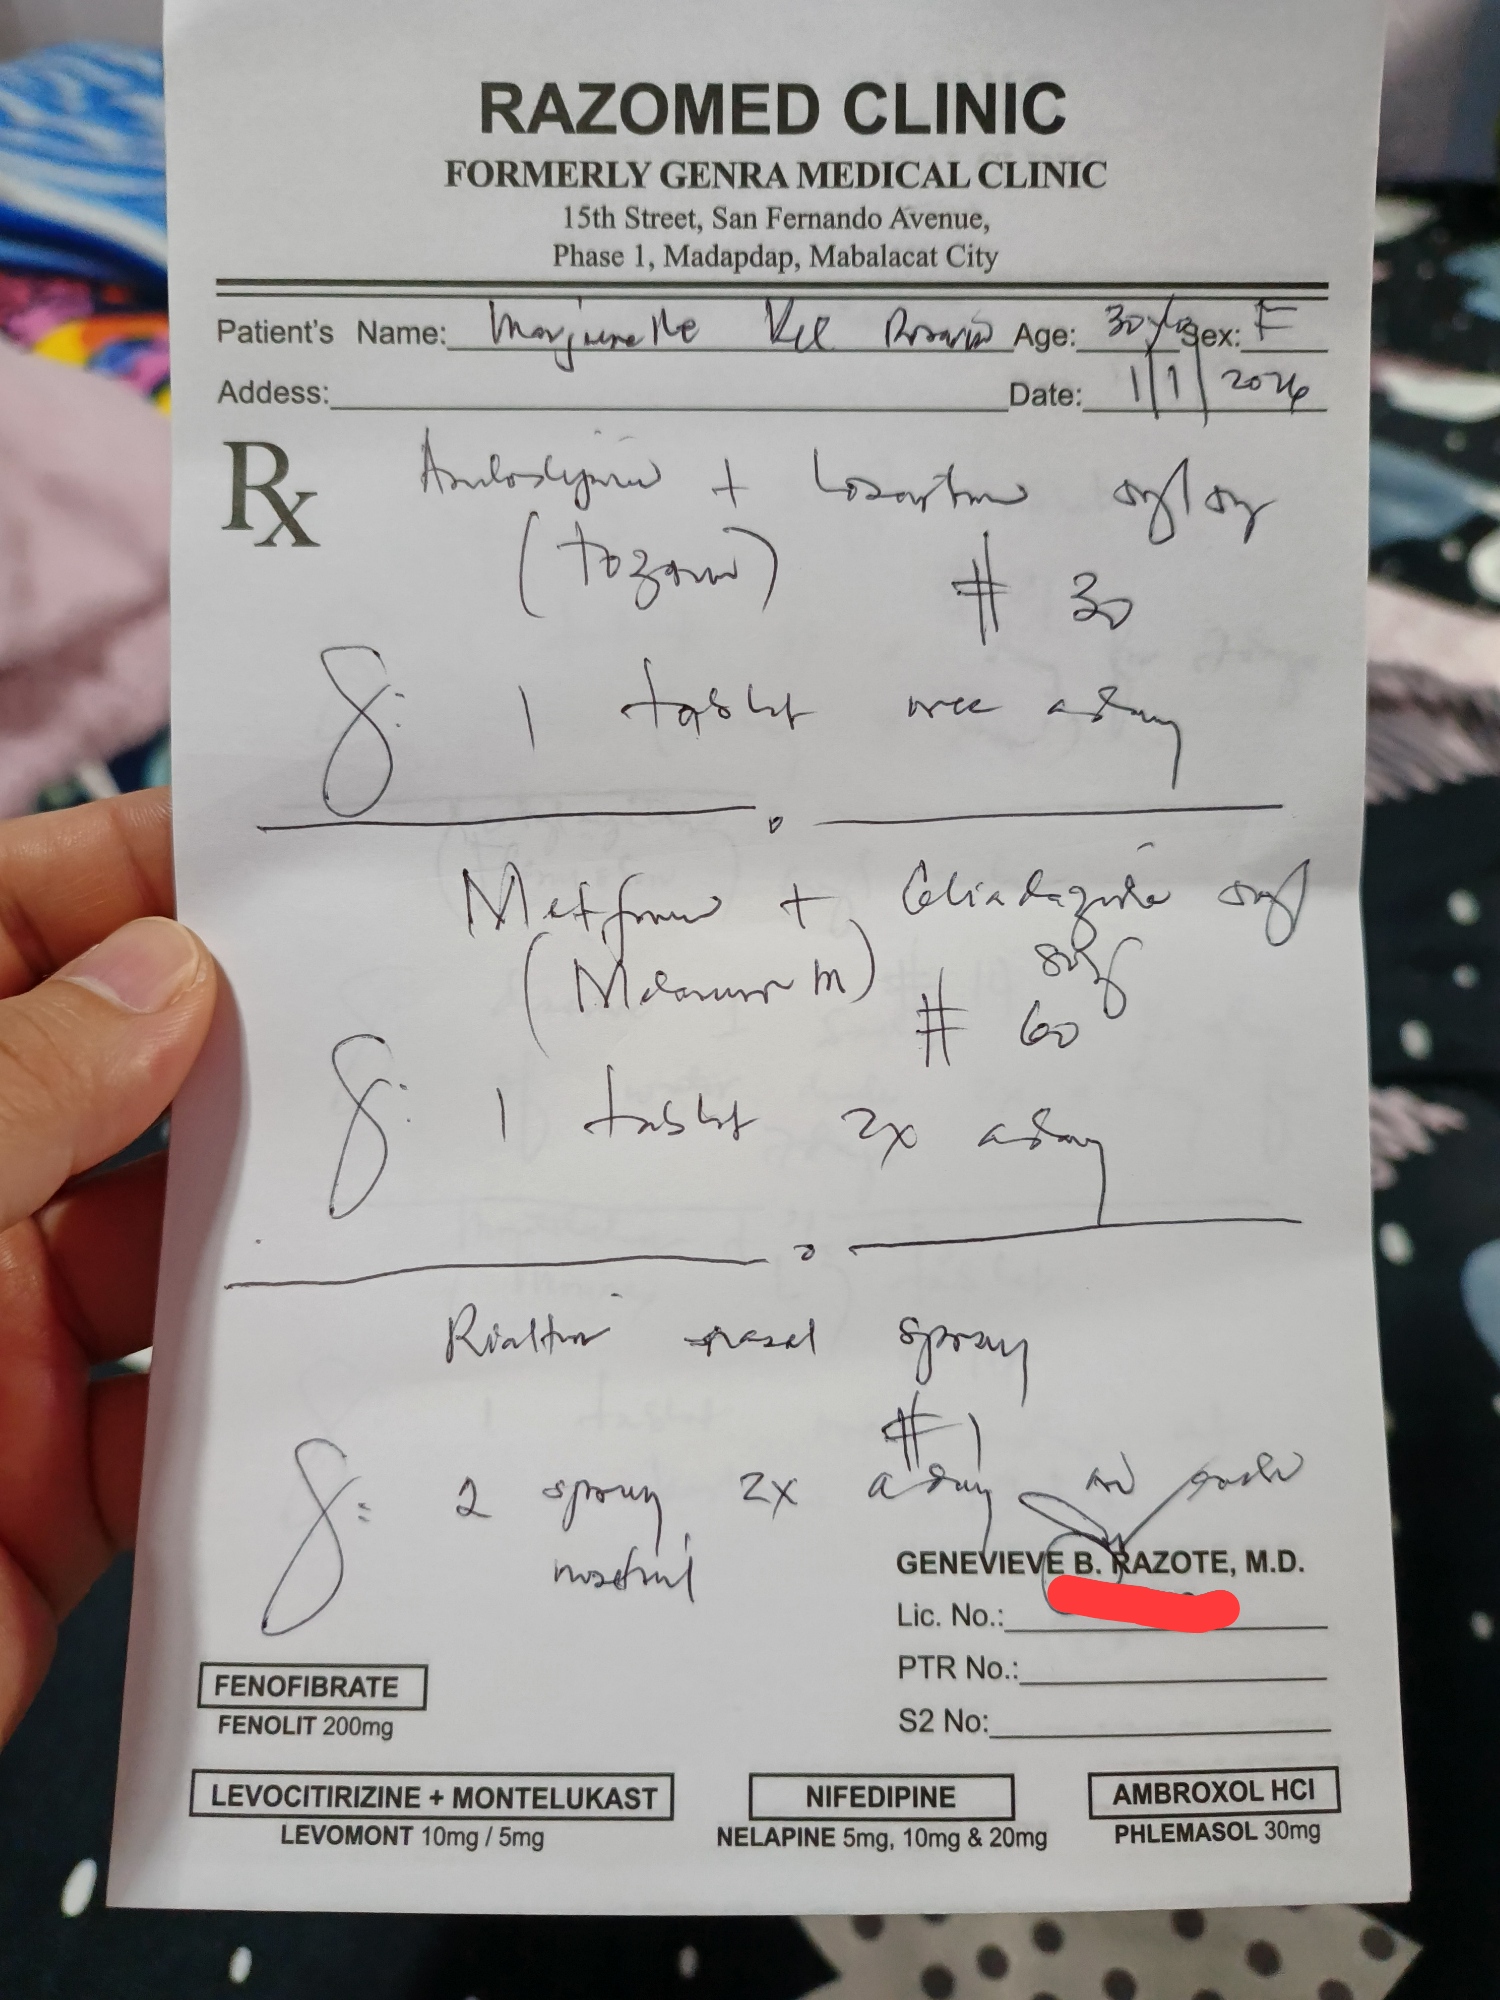 RAZOMED CLINIC
FORMERLY GENRA MEDICAL CLINIC
15th Street, San Fernando Avenue,
Phase 1, Madapdap, Mabalacat City
Patient's Name: Age: 30 Sex: F
Addess: Date: 1/1/2026
Rx Amlodipine + Losartan
# 30
S: 1 tablet once a day
Metformin + Gliclazide
# 60
S: 1 tablet 2x a day
nasal spray
#1
S: 2 spray 2x a day
nostril
GENEVIEVE B. RAZOTE, M.D.
Lic. No.:
PTR No.:
S2 No:
FENOFIBRATE
FENOLIT 200mg
LEVOCITIRIZINE + MONTELUKAST
LEVOMONT 10mg / 5mg
NIFEDIPINE
NELAPINE 5mg, 10mg & 20mg
AMBROXOL HCl
PHLEMASOL 30mg